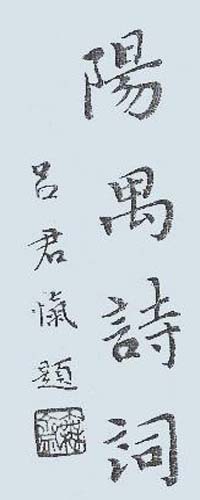 陽禺詩詞
呂君愾題